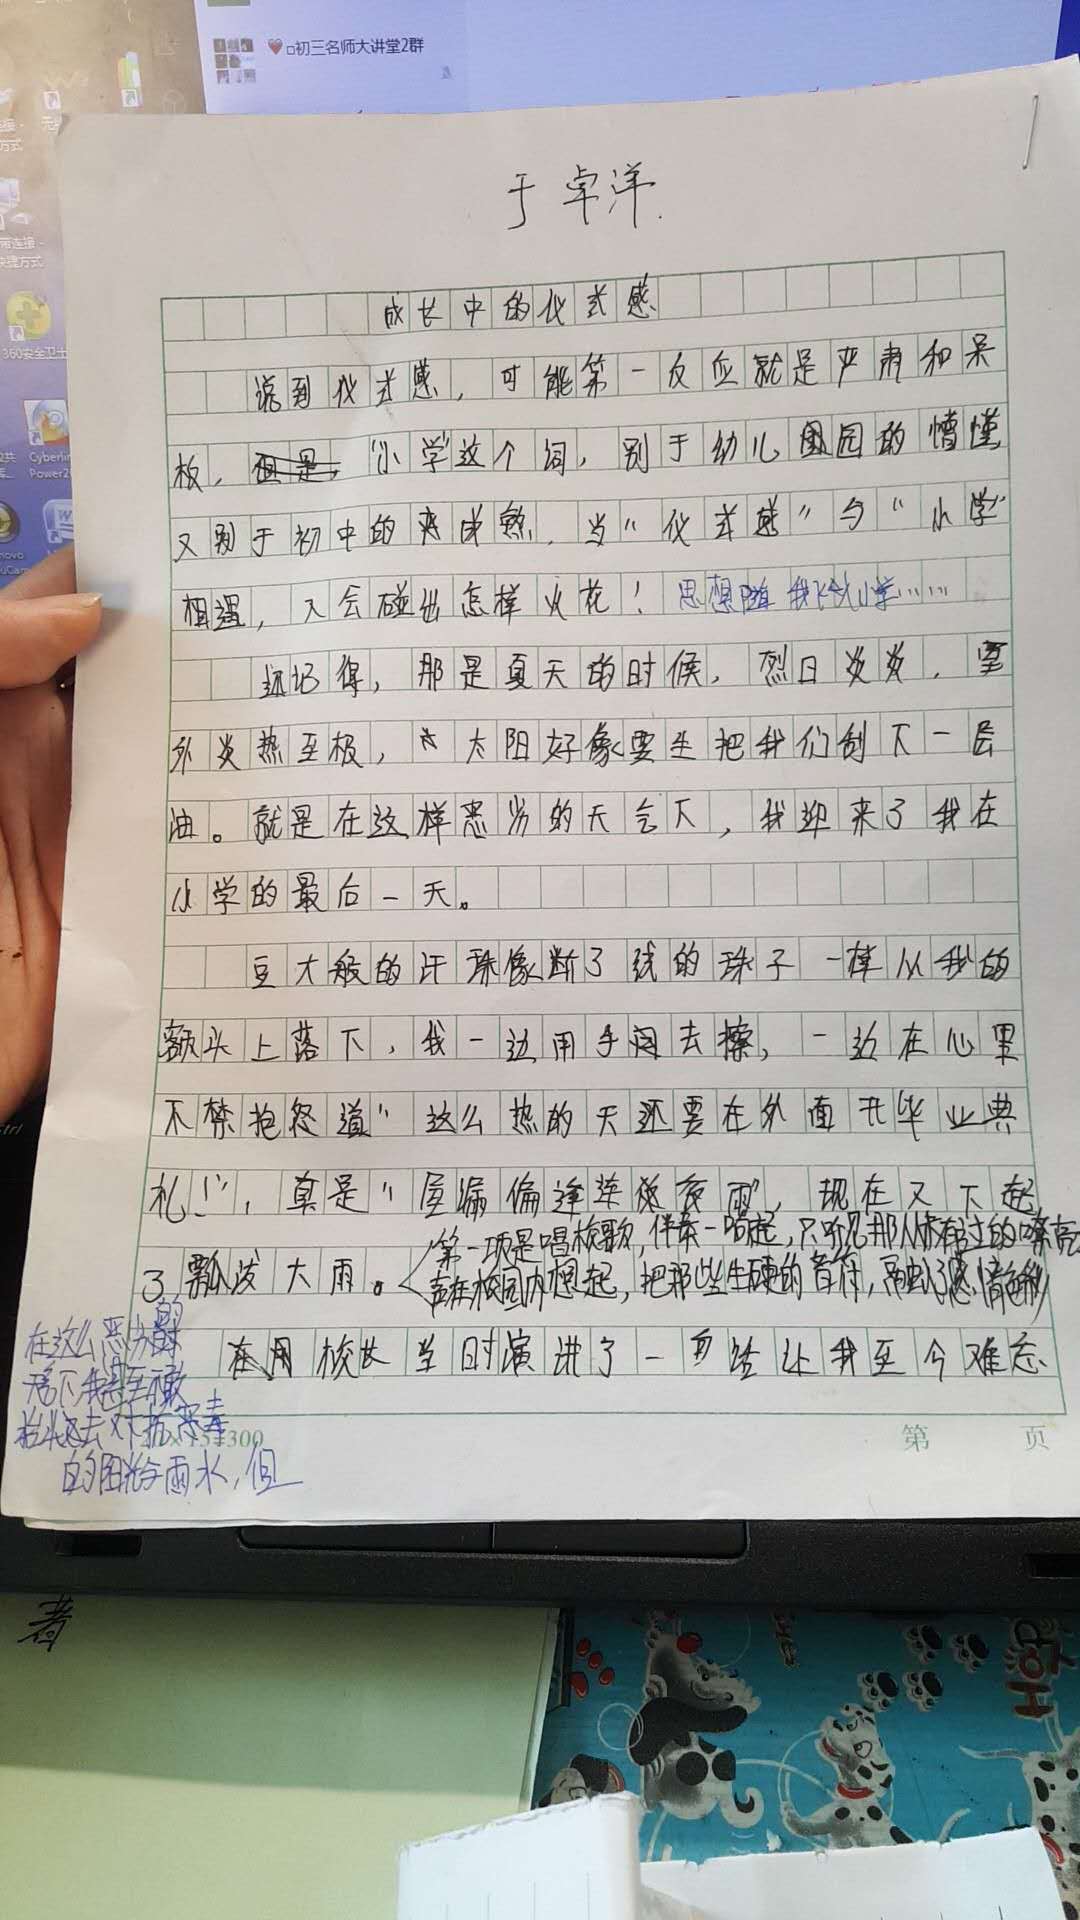 初三名师大讲堂2群
于卓洋
成长中的仪式感
说到仪式感，可能第一反应就是严肃和呆
板，但是，“小学”这个词，别于幼儿园的懵懂
又别于初中的成熟，当“仪式感”与“小学”
相遇，又会碰出怎样火花！思想随我飞到小学……
还记得，那是夏天的时候，烈日炎炎，室
外炎热至极，太阳好像要生把我们刮下一层
油。就是在这样恶劣的天气下，我迎来了我在
小学的最后一天。
豆大般的汗珠像断了线的珠子一样从我的
额头上落下，我一边用手阔去擦，一边在心里
不禁抱怨道“这么热的天还要在外面开毕业典
礼！”，真是“屋漏偏逢连夜雨”，现在又下起
了瓢泼大雨。
第一项是唱校歌，伴奏一响起，只听见那从未有过的嘹亮
声在校园内想起，把那些生硬的音符，融入了感情色彩
在这么恶劣的
天下我甚至不敢
抬头去对抗恶毒
的阳光与雨水，但
校长当时演讲了一句话让我至今难忘
20×15=300
第 页
360安全卫士
Cyberlin
Power2
者
HOP